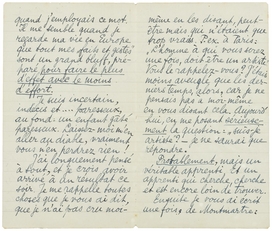 quand j'employais ce mot.
Il me semble quand je
regarde ma vie en Europe
que tout mes faits et gestes
sont un grand bluff, pré-
paré pour faire le plus
d'effet avec le moins
d'effort.
Je suis incertain,
indécis et ... paresseux,
au fond un enfant gâté
paresseux. Laissez-moi m'en
aller au diable, vraiment
vous n'en perdrez rien!
J'ai longuement pensé
à tout, et je crois avoir
arrivé à un résultat ce
soir. Je me rappelle toutes
choses que je vous ai dit,
que je n'ai pas cru moi-
même en les disant, peut-
être mais que n'étaient que
trop vraies. Peu, à Tarde.
L'homme à qui vous serez
une fois, doit être un artiste.
Vous le rappelez-vous? J'étais
moins aveugle que les der-
niers temps, alors, car je ne
pensais pas à moi-même
en vous disant cela. Aujourd'
hui, en me posant sérieuse-
ment la question: suis-je
artiste? — je ne saurai que
répondre.
Probablement, mais un
véritable apprenti, et un
apprenti qui cherche, cherche
et est encore loin de trouver.
Ensuite je vous ai écrit
une fois, de Montmartre: